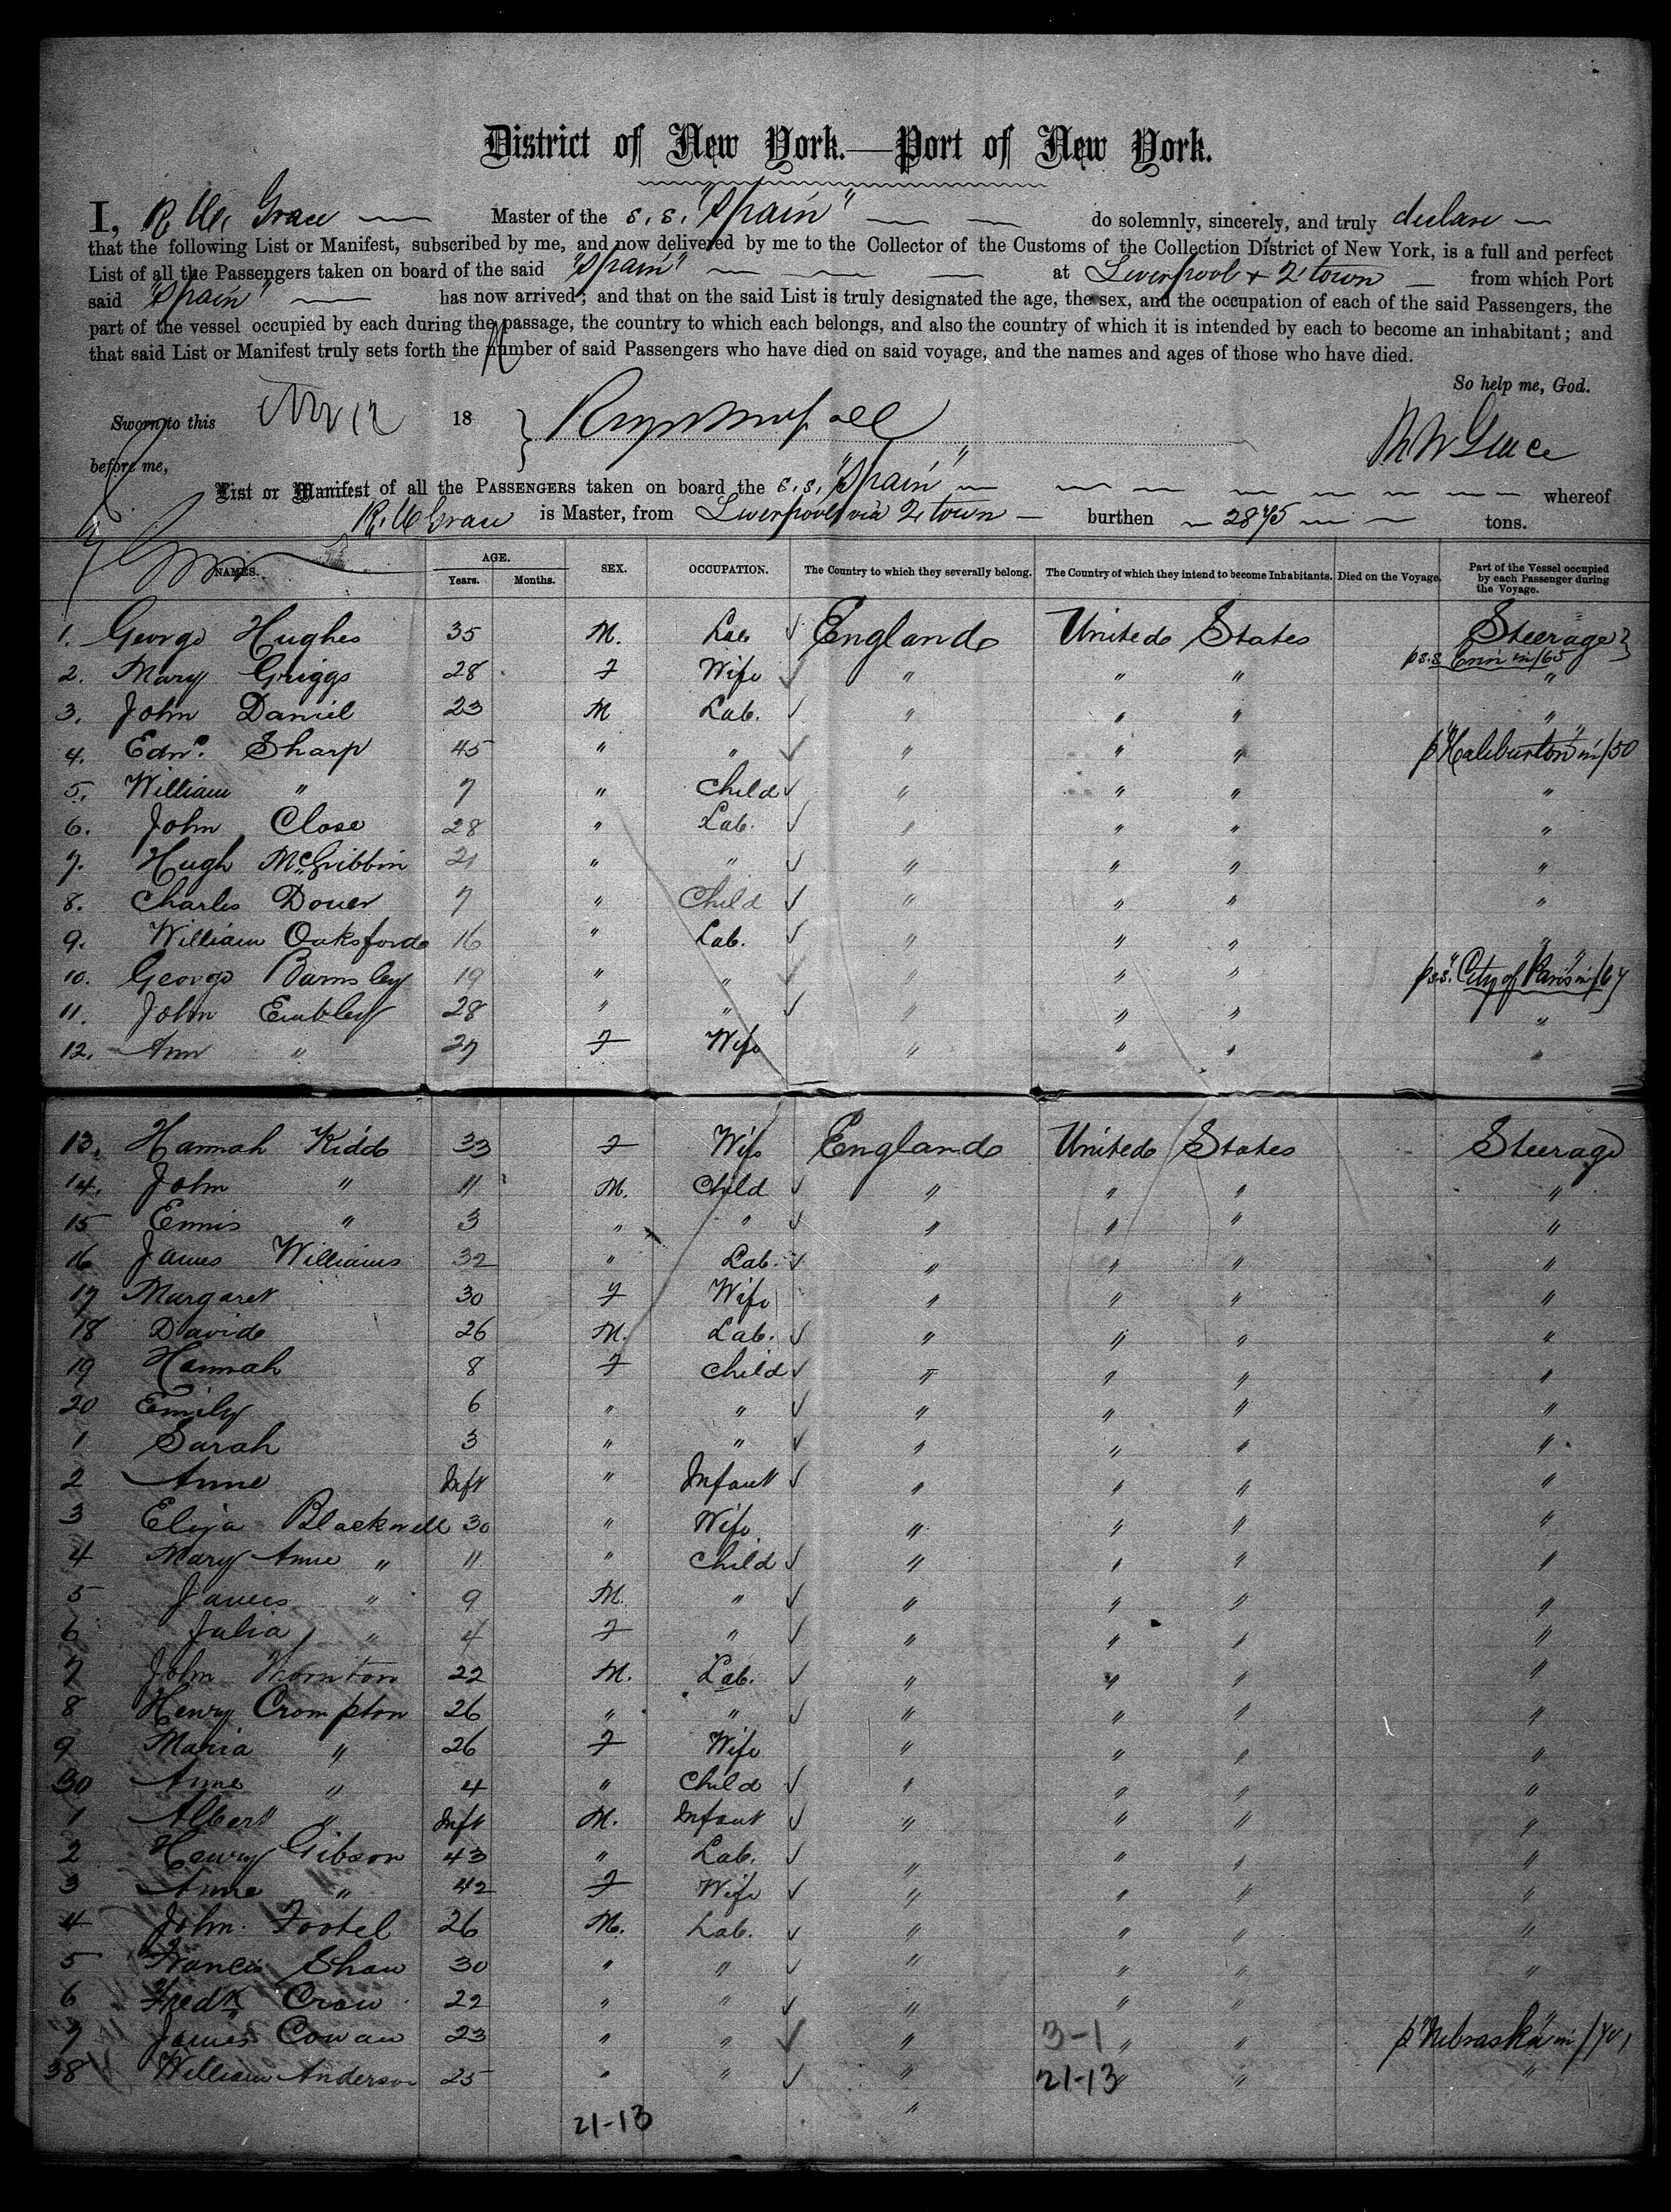 District of New York.—Port of New York.
I, R. W. Grace — Master of the s.s. "Spain" — — do solemnly, sincerely, and truly declare —
that the following List or Manifest, subscribed by me, and now delivered by me to the Collector of the Customs of the Collection District of New York, is a full and perfect
List of all the Passengers taken on board of the said "Spain" — — — at Liverpool & Q town — from which Port
said "Spain" — has now arrived; and that on the said List is truly designated the age, the sex, and the occupation of each of the said Passengers, the
part of the vessel occupied by each during the passage, the country to which each belongs, and also the country of which it is intended by each to become an inhabitant; and
that said List or Manifest truly sets forth the number of said Passengers who have died on said voyage, and the names and ages of those who have died.
So help me, God.
Sworn to this Nov 12 18
R W Grace
before me,
List or Manifest of all the PASSENGERS taken on board the s.s. "Spain" — — — — — — — — whereof
R. W Grace is Master, from Liverpool via Q town — burthen — 28 45 — — tons.
NAMES. AGE. Years. Months. SEX. OCCUPATION. The Country to which they severally belong. The Country of which they intend to become Inhabitants. Died on the Voyage. Part of the Vessel occupied by each Passenger during the Voyage.
1. George Hughes 35 M. Lab ✓ England United States Steerage
p s.s Erin in/65
2. Mary Griggs 28 F Wife ✓ " " " "
3. John Daniel 23 M Lab. ✓ " " " "
4. Edwd. Sharp 45 " " ✓ " " " p "Haliburton" in/50
5. William " 7 " Child ✓ " " " "
6. John Close 28 " Lab. ✓ " " " "
7. Hugh McGribbin 21 " " ✓ " " " "
8. Charles Dover 7 " Child ✓ " " " "
9. William Oaksford 16 " Lab. ✓ " " " "
10. George Barnsley 19 " " ✓ " " " p s.s. "City of Paris" in/67
11. John Embley 28 " " ✓ " " " "
12. Ann " 27 F Wife " " " "
13. Hannah Kidd 33 F Wife England United States Steerage
14. John " 11 M. Child ✓ " " " "
15 Ennis " 3 " " ✓ " " " "
16 James Williams 32 " Lab. ✓ " " " "
17 Margaret 30 F Wife " " " "
18 David 26 M. Lab. ✓ " " " "
19 Hannah 8 F Child ✓ " " " "
20 Emily 6 " " ✓ " " " "
1 Sarah 3 " " ✓ " " " "
2 Anne Inft " Infant ✓ " " " "
3 Eliza Blackwell 30 " Wife " " " "
4 Mary Anne " 11 " Child ✓ " " " "
5 James " 9 M. " ✓ " " " "
6 Julia " 4 F " ✓ " " " "
7 John Thornton 22 M. Lab. ✓ " " " "
8 Henry Crompton 26 " " ✓ " " " "
9 Maria " 26 F Wife " " " "
30 Anne " 4 " Child ✓ " " " "
1 Albert " Inft M. Infant ✓ " " " "
2 Henry Gibson 43 " Lab. ✓ " " " "
3 Anne " 42 F Wife ✓ " " " "
4 John Footel 26 M. Lab. ✓ " " " "
5 Francis Shaw 30 " " ✓ " " " "
6 Fredk Crow 22 " " ✓ " " " "
7 James Cowan 23 " " ✓ " 3-1 " " p "Nebraska" in/70
38 William Anderson 25 " " ✓ " 21-13 " " "
21-13 "